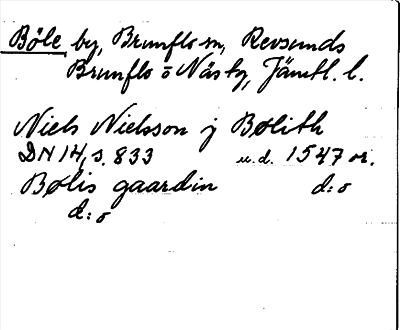 Böle by, Brunflo sn, Revsunds
Brunflo o Näs tg, Jämtl. l.
Niels Nielsson j Bølith
DN 14, s. 833 u.d. 1547 or.
Bølis gaardin d:o
d:o